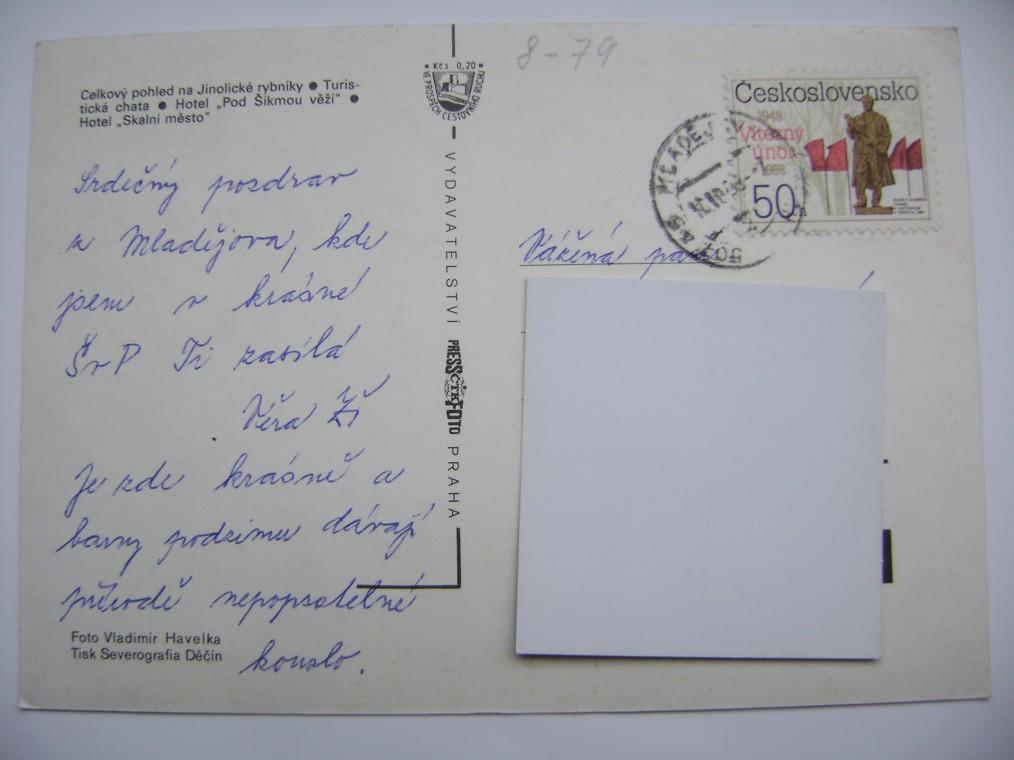 8-79
Celkový pohled na Jinolické rybníky ● Turis-
tická chata ● Hotel „Pod Šikmou věží" ●
Hotel „Skalní město"
* Kčs 0,20 *
VE PROSPĚCH CESTOVNÍHO RUCHU
Srdečný pozdrav
z Mladějova, kde
jsem v krásné
ŠvP Ti zasílá
Věra
Je zde krásně a
barvy podzimu dávají
přírodě nepopsatelné
kouzlo.
Foto Vladimír Havelka
Tisk Severografia Děčín
VYDAVATELSTVÍ PRESSFOTO PRAHA
ČTK
Československo
1948
Vítězný
únor
1988
50h
MLADĚJ
Vážená